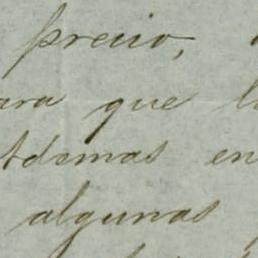 precio,
ara que l
Ademas en
algunas